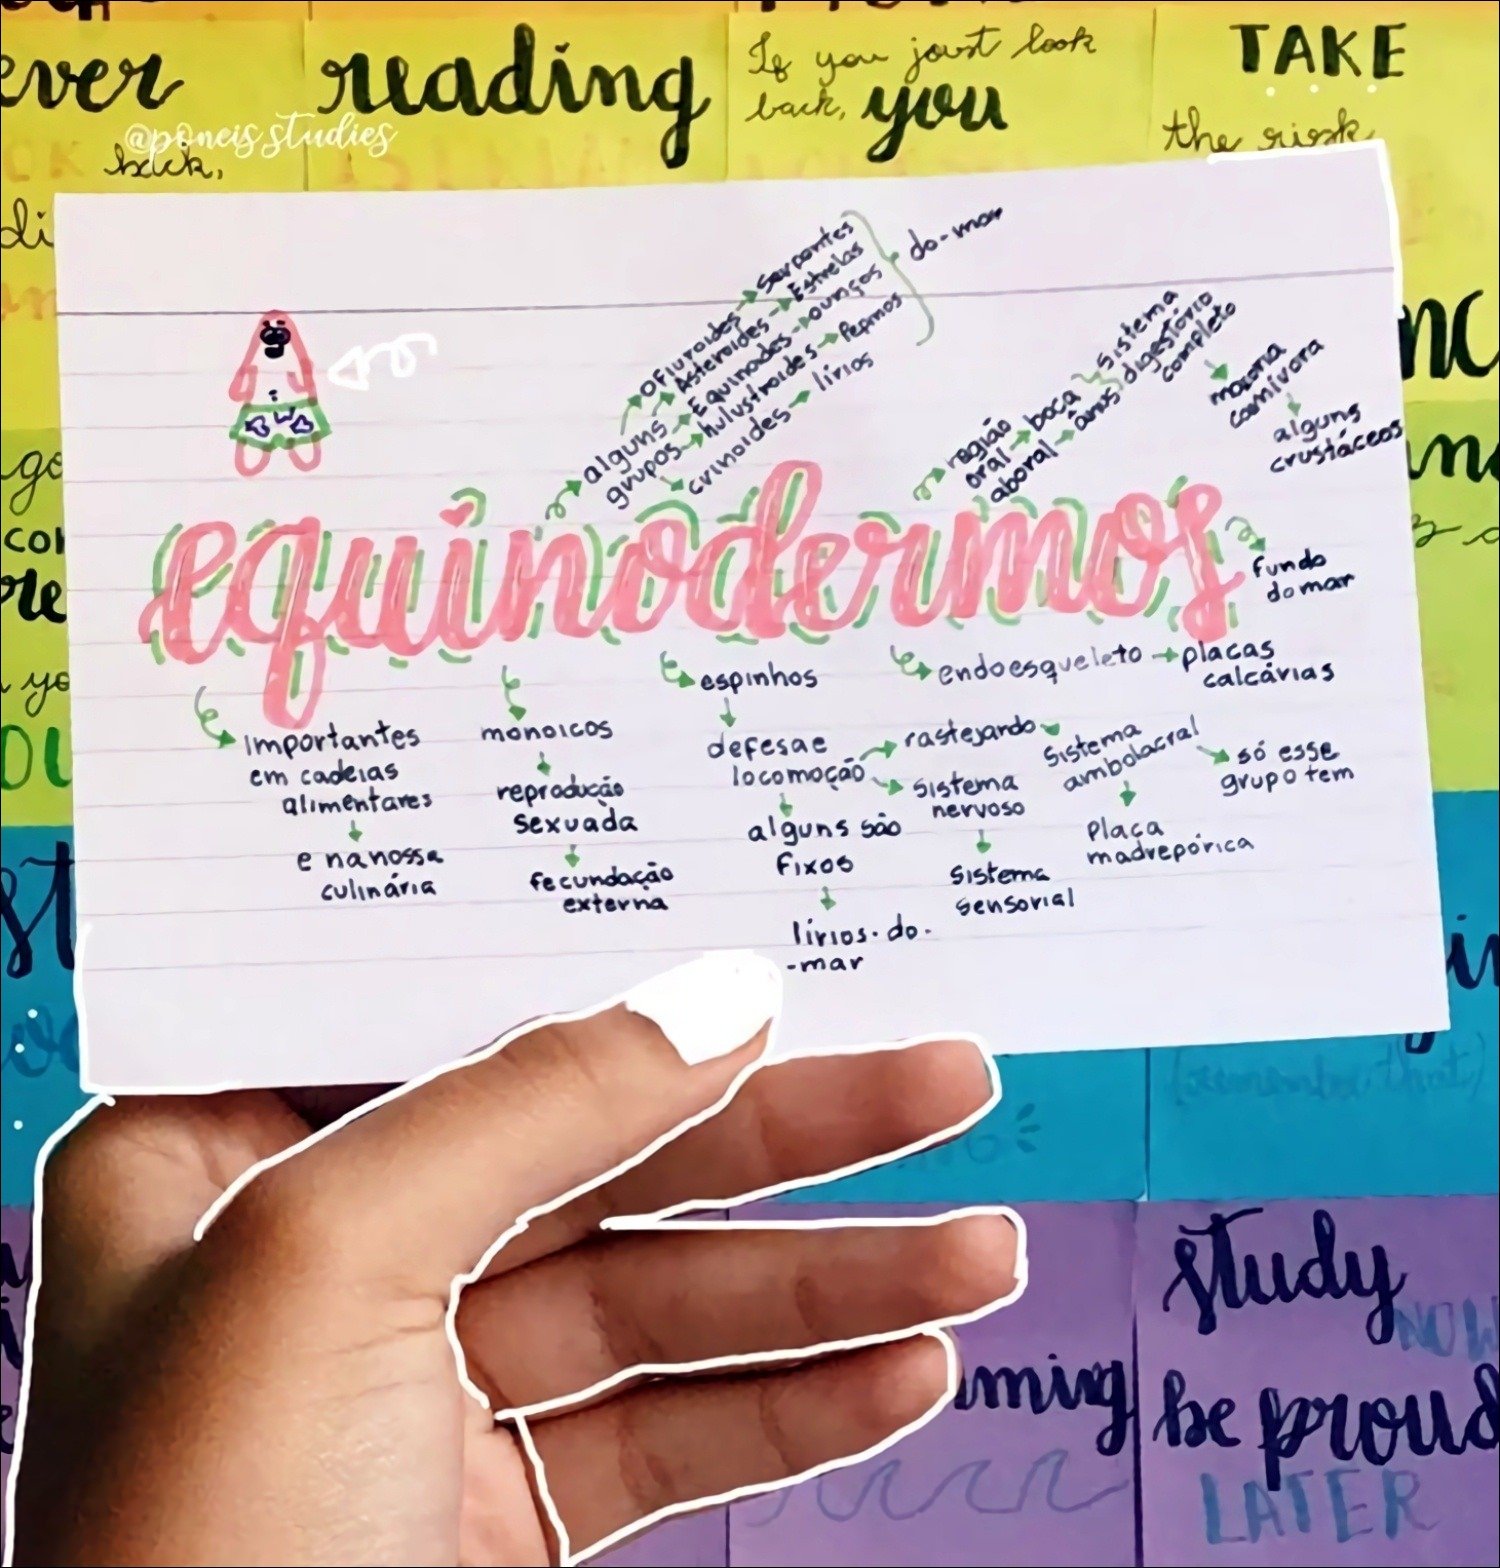 ever
reading
If you just look
back, you
TAKE
the risk
@poneisstudies
back,
do-mar
Ofiuroides → Serpentes
Asteroides → Estrelas
Equinodes → ouriços
hulustroides → Pepinos
crinoides → lírios
alguns
grupos
região
oral → boca
aboral → ânus
Sistema
digestório
completo
maioria
carnívora
alguns
crustáceos
equinodermos
fundo
do mar
endoesqueleto → placas
calcárias
espinhos
importantes
em cadeias
alimentares
e na nossa
culinária
monoicos
reprodução
sexuada
fecundação
externa
defesa e
locomoção
alguns são
fixos
lírios-do-
-mar
rastejando
Sistema
nervoso
Sistema
sensorial
Sistema
ambolacral
Placa
madrepórica
só esse
grupo tem
(remember that)
study
NOW
be proud
LATER